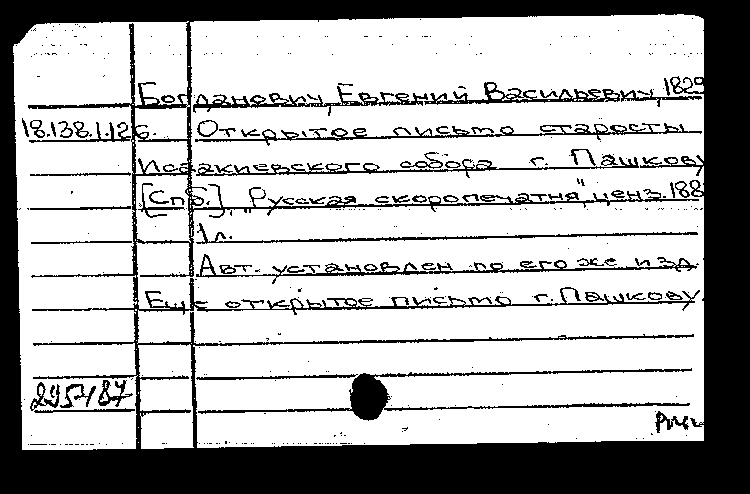 Богданович, Евгений Васильевич, 1829
18.138.1.126. Открытое письмо старосты
Исаакиевского собора г. Пашкову
[Спб.], "Русская скоропечатня", ценз. 188
1 л.
Авт. установлен по его же изд.
Еще открытое письмо г. Пашкову.
2957/87